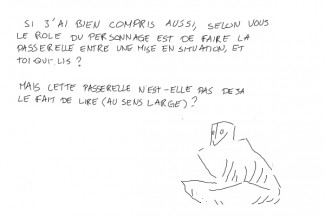 SI J'AI BIEN COMPRIS AUSSI, SELON VOUS
LE ROLE DU PERSONNAGE EST DE FAIRE LA
PASSERELLE ENTRE UNE MISE EN SITUATION, ET
TOI QUI LIS ?
MAIS CETTE PASSERELLE N'EST-ELLE PAS DEJA
LE FAIT DE LIRE (AU SENS LARGE) ?